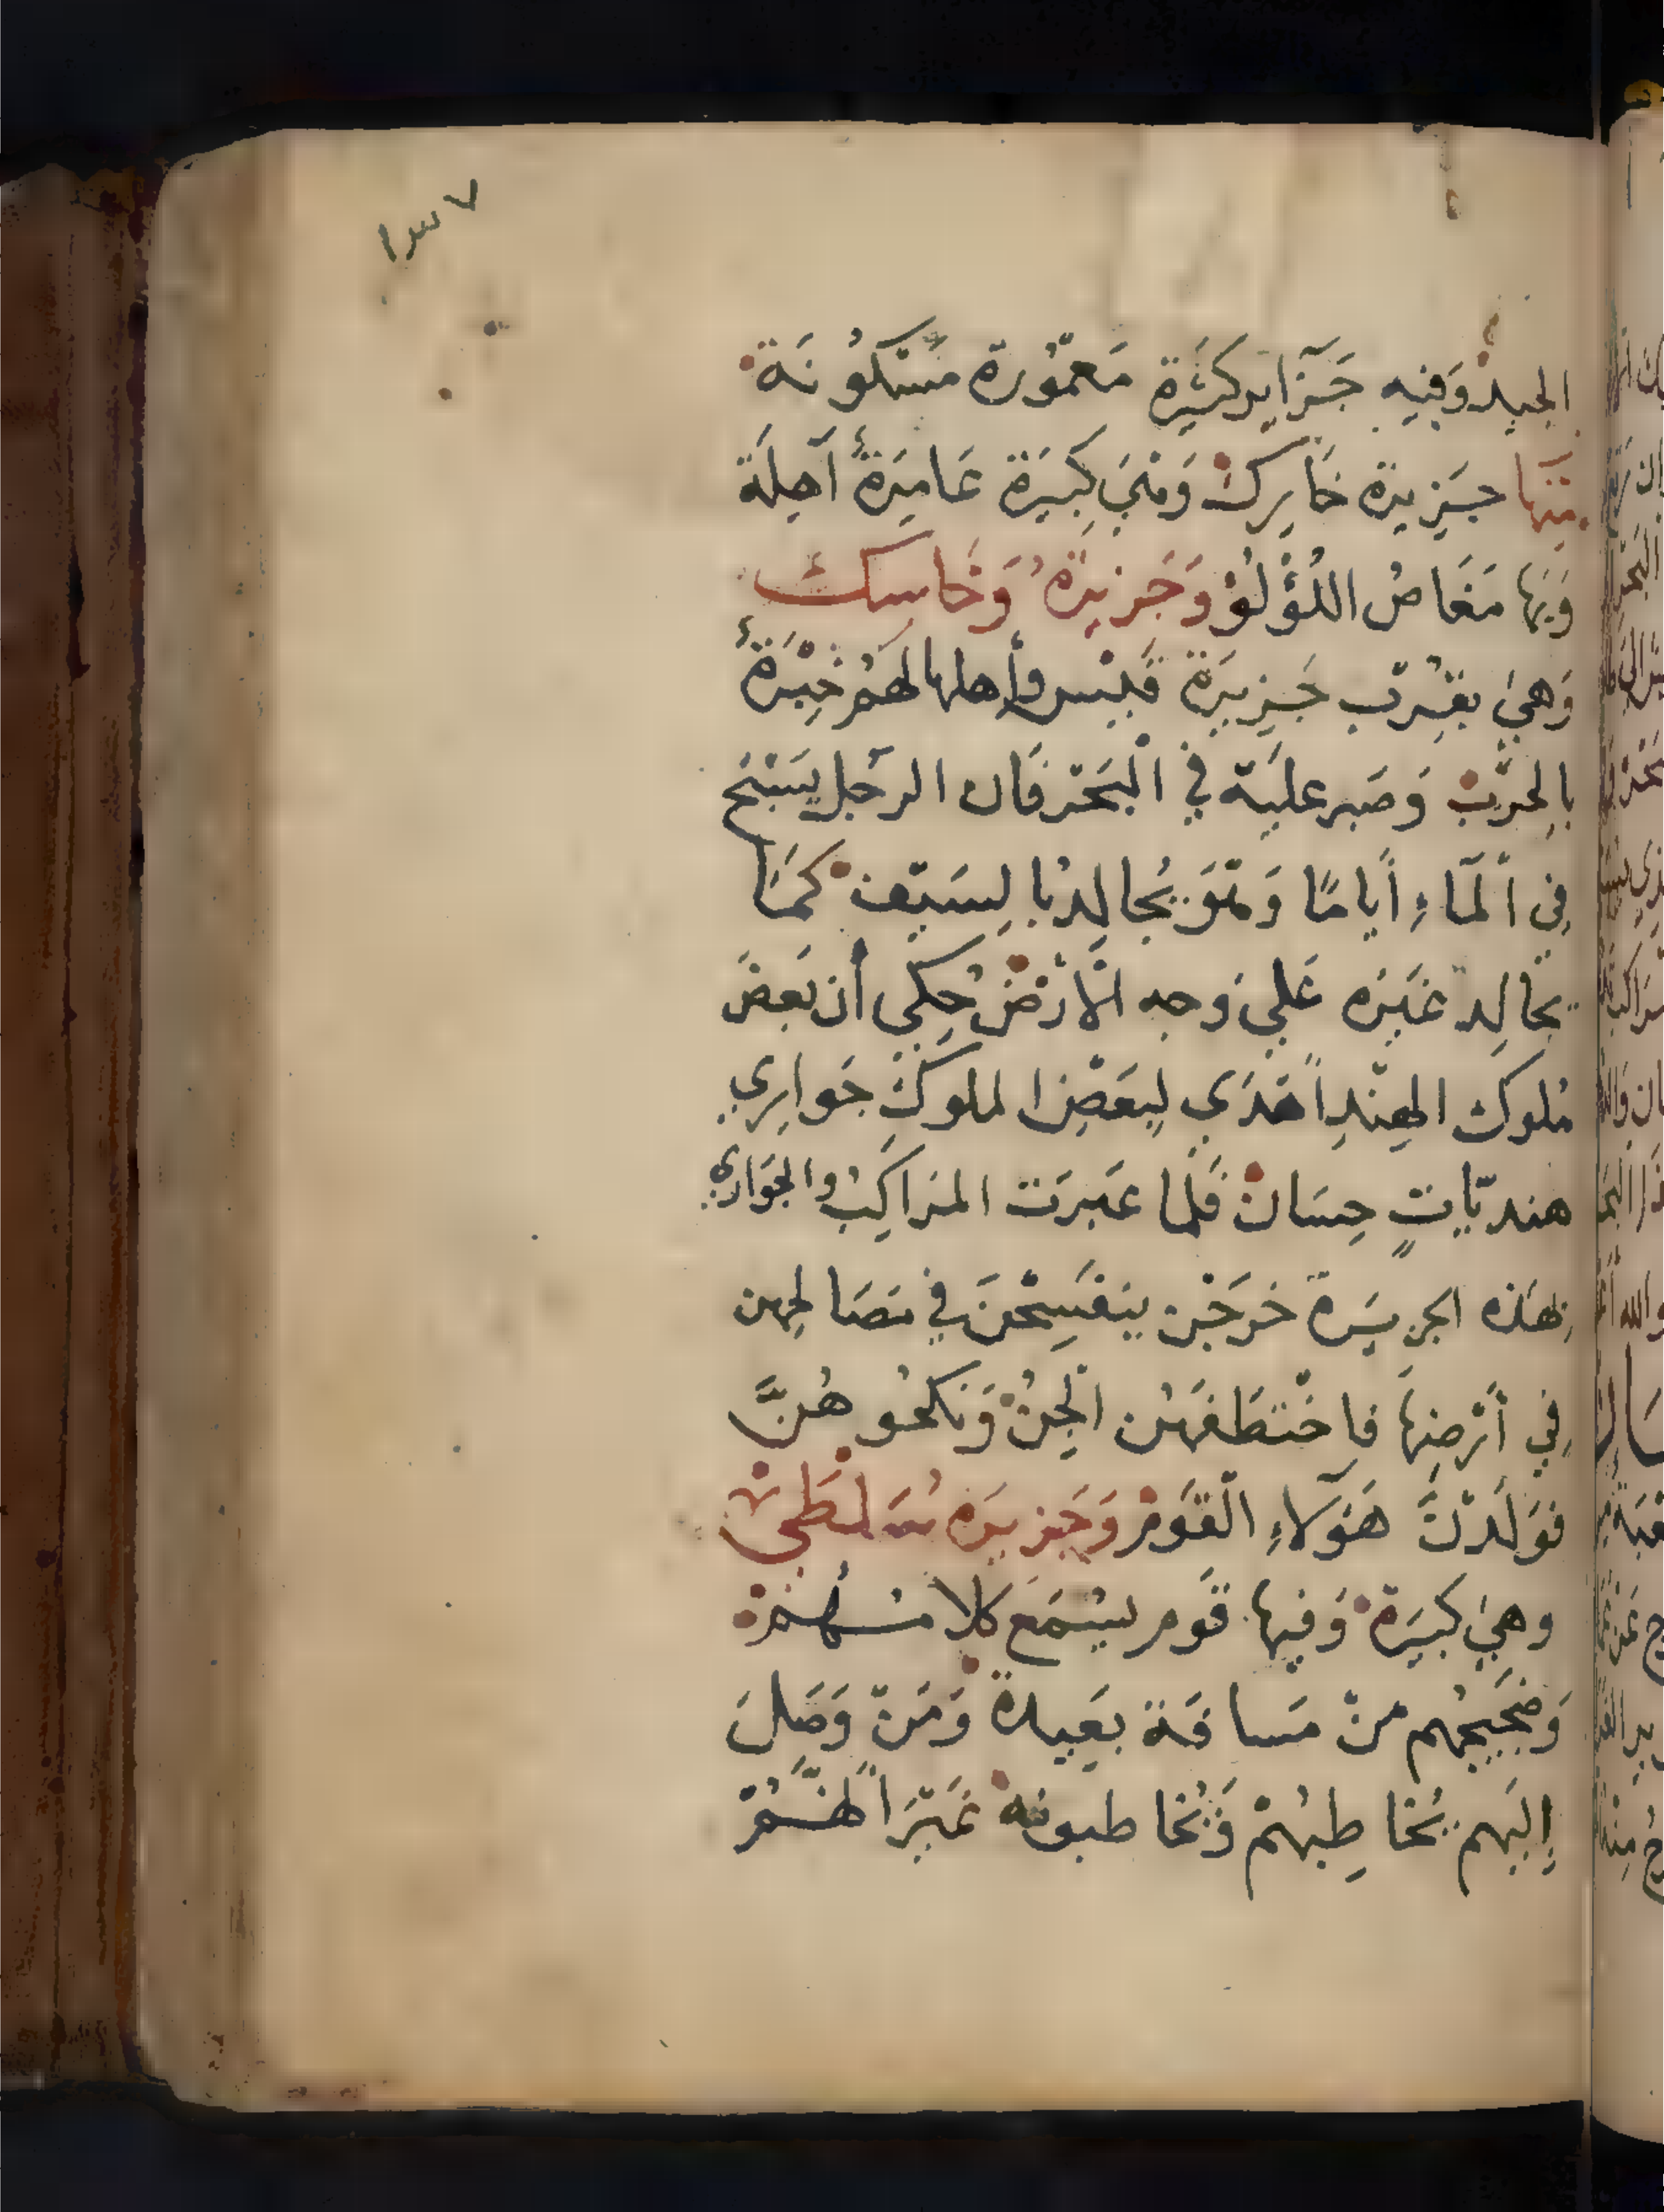 ١٣٧
الجيد وَفيه جَزَآير كثيَرة مَعمُورة مَسْكُونَة
مِنَها جَزِيرة خَارِكْ وَهيَ كِبيَرة عَامِرَةٌ آهِلَة
وَبَها مَغَاصُ اللُؤْلُؤْ وَجَزِيرَةُ وَخَاسِك
وَهيَ بقِرُب جَزِيرَة قَيْس وأهلها لهَمُ خِبْرَةٌ
بالِحرَبْ وَصَبر عليَة في الْبَحْر فَان الرجَل يَسْبَح
فِي الْمَآءِ أيامًا وَهَوَ يُجالِد بالِسَيَف كمَا
يجَالِد غَيَره عَليَ وجه الْأرْضْ حُكِي أن بَعضَ
مُلوك الهِنْدِ أهَدَي لِبعَضِ الملوكَ جَوارِي
هنديّاتٍ حِسَانْ فَلما عَبرَت المرَاكِبُ والجَوَاري
بِهَذه الجزيَرة خَرَجْن يَتفَسِحْنَ في مَصَالحِهن
فِي أرْضِهَا فاخْتَطَفَهُن الْجِنُ وَنكحُوهُنَّ
فوَلَدْنَ هَؤلآءِ الْقَوْم وَجَزِيرَه سَلْطَي
وهيَ كبيَرة وَفيها قَوم يسْمَع كلامهُمْ
وَضَجَيجُهم منْ مَسافَة بعَيدة وَمَنْ وَصَلَ
إليَهم يُخاطِبهُمْ وَيُخاطبونه غَيْرَ أنهَّمُْ